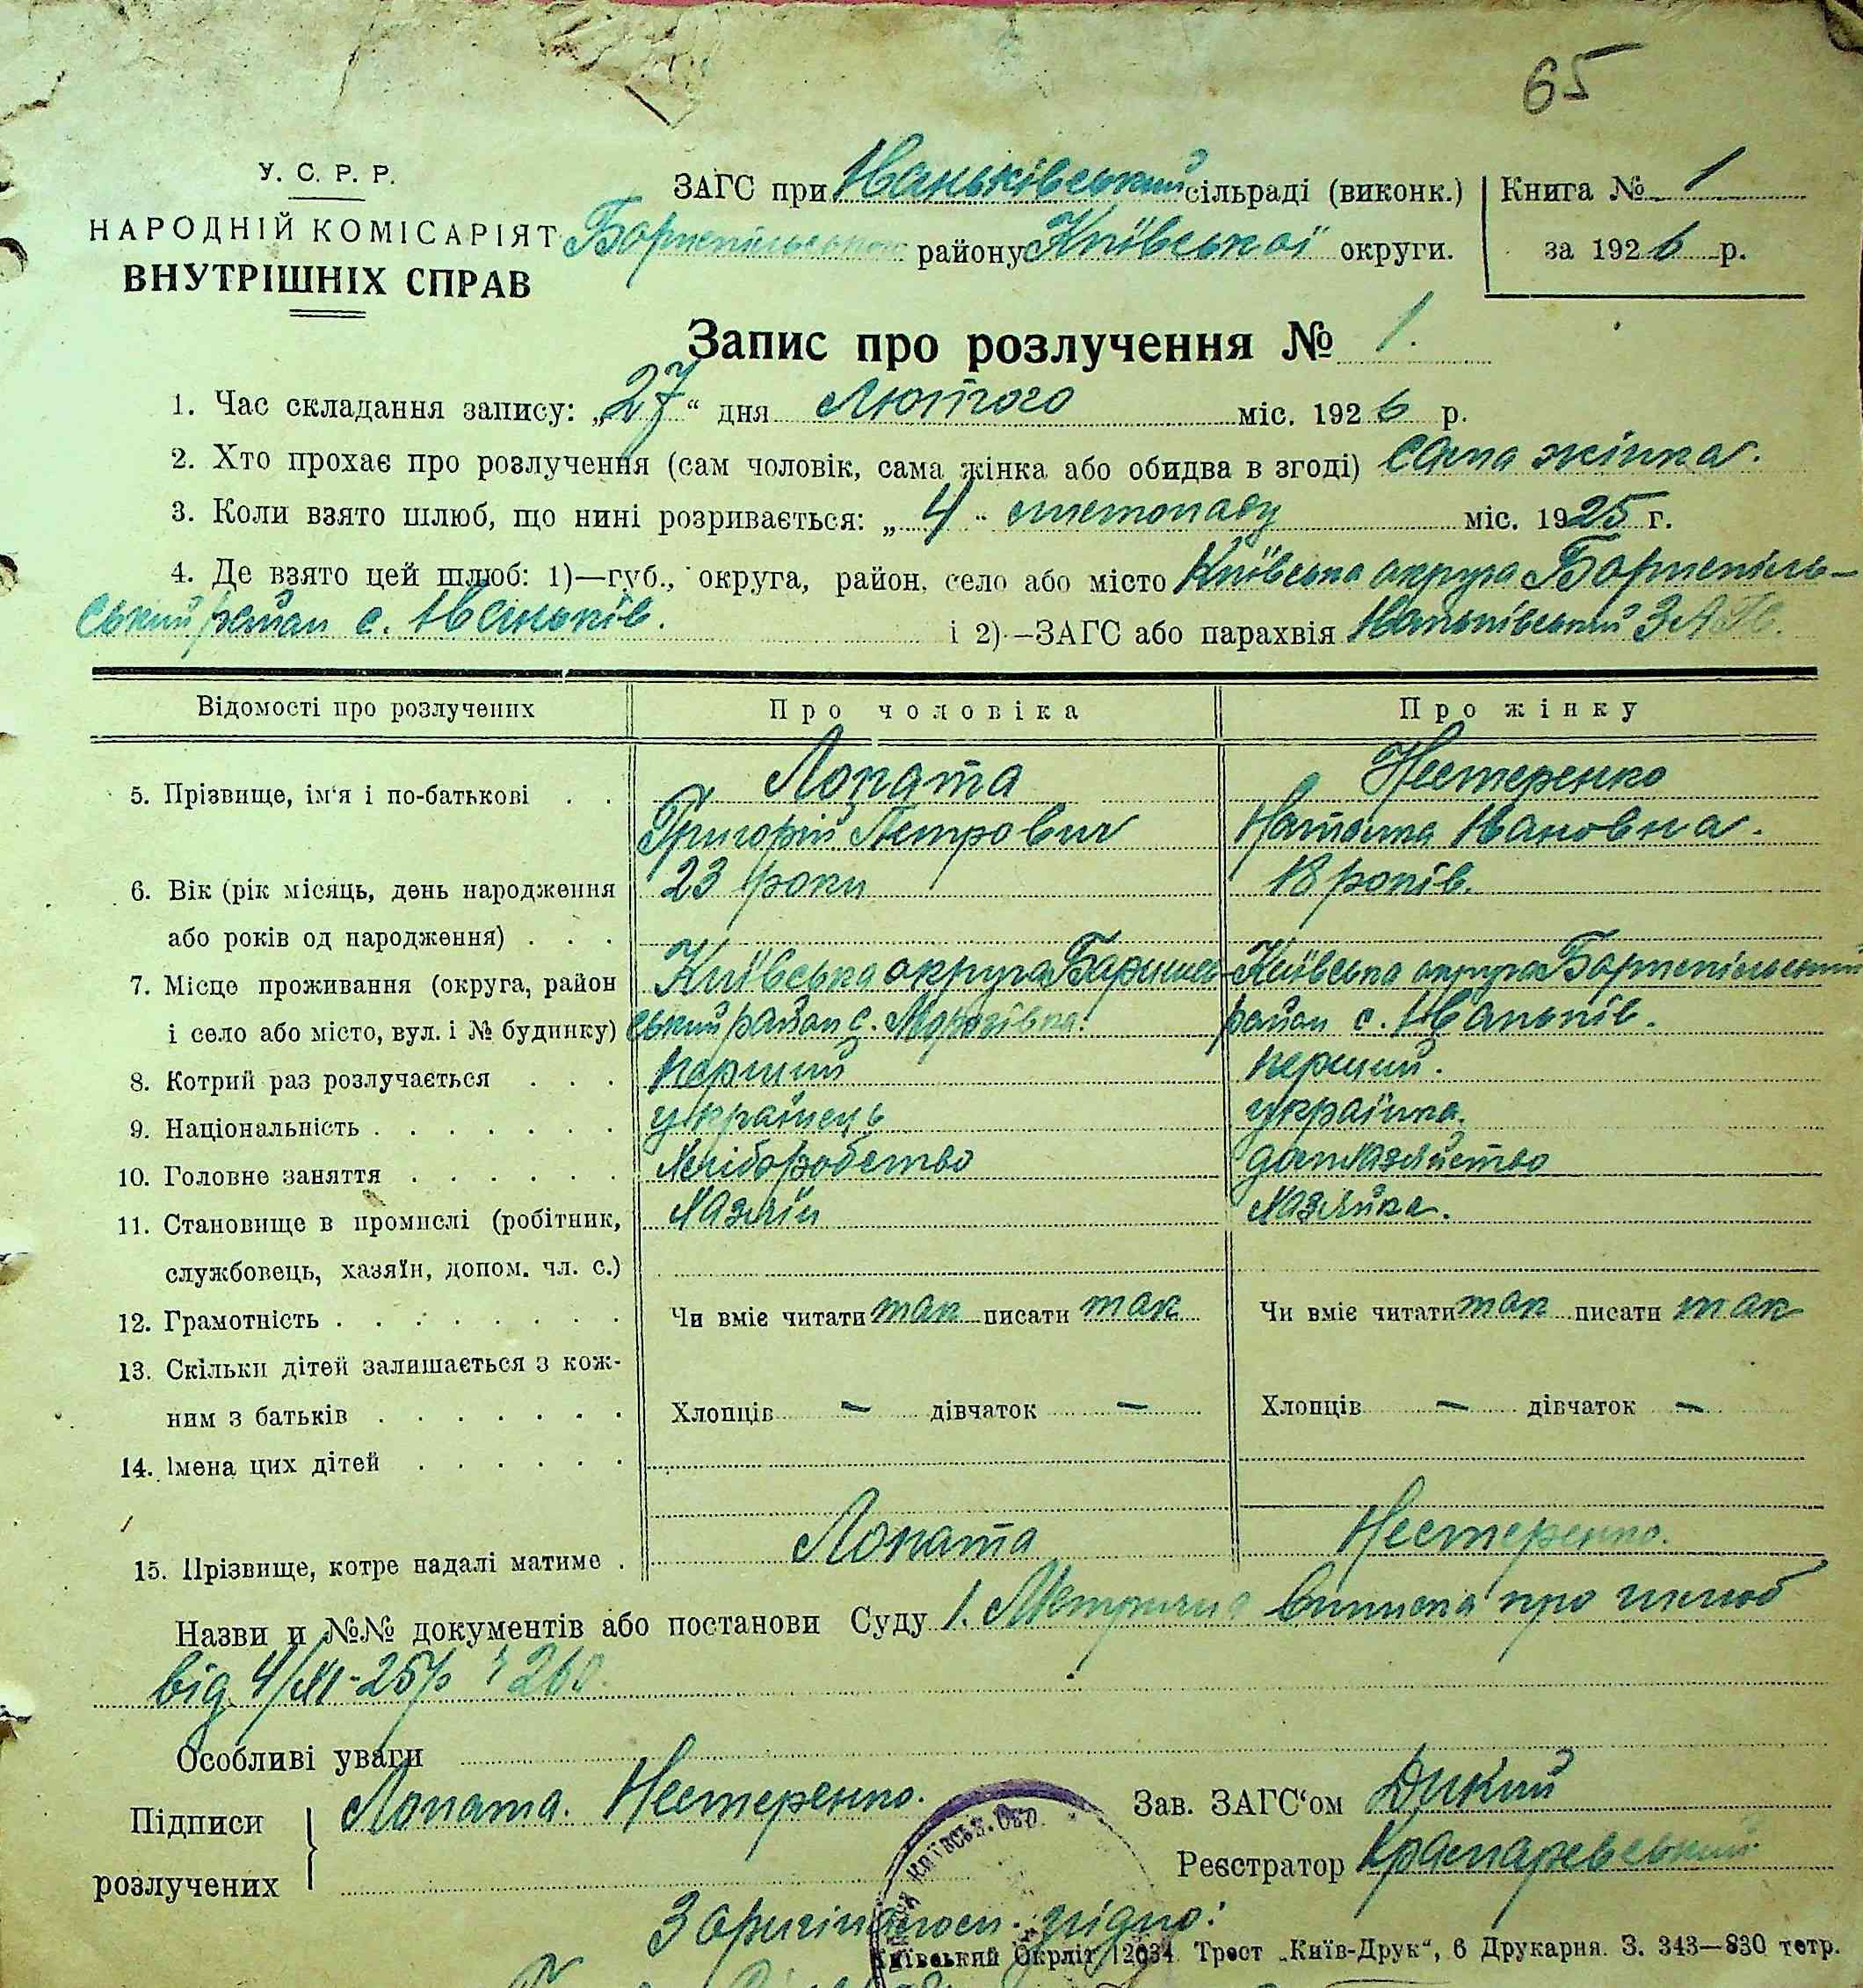 65
У. С. Р. Р.
НАРОДНІЙ КОМІСАРІЯТ
ВНУТРІШНІХ СПРАВ
ЗАГС при Иваньківський сільраді (виконк.)
Бориспільського району Київської округи.
Книга № 1
за 1926 р.
Запис про розлучення № 1.
1. Час складання запису: „27“ дня Лютого міс. 1926 р.
2. Хто прохає про розлучення (сам чоловік, сама жінка або обидва в згоді) сама жінка.
3. Коли взято шлюб, що нині розривається: „4“ листопаду міс. 1925 г.
4. Де взято цей шлюб: 1)—губ., округа, район, село або місто Київська округа Бориспіль-
ський район с. Иваньків. і 2)—ЗАГС або парахвія Иваньківський ЗАГС.
Відомості про розлучених Про чоловіка Про жінку
5. Прізвище, ім‘я і по-батькові . . Лопата Нестеренко
Григорій Петрович Наталка Ивановна.
6. Вік (рік місяць, день народження 23 роки 18 років.
або років од народження) . . .
7. Місце проживання (округа, район Київська округа Баришев- Київська округа Бориспільський
і село або місто, вул. і № будинку) ський район с. Морозівка. район с. Иваньків.
8. Котрий раз розлучається . . . перший перший.
9. Національність . . . . . . . українець українка.
10. Головне заняття . . . . . . Хліборобство домхазяйство
11. Становище в промислі (робітник, Хазяїн Хазяйка.
службовець, хазяїн, допом. чл. с.)
12. Грамотність . . . . . . . . Чи вміє читати так писати так Чи вміє читати так писати так
13. Скільки дітей залишається з кож-
ним з батьків . . . . . . . Хлопців — дівчаток — Хлопців — дівчаток —
14. Імена цих дітей . . . . . .
15. Прізвище, котре надалі матиме . Лопата Нестеренко.
Назви и №№ документів або постанови Суду 1. Метрична виписка про шлюб
від 4/XI-25 р 260.
Особливі уваги
Підписи розлучених Лопата. Нестеренко.
Зав. ЗАГС‘ом Дикий
Реєстратор
КИЇВСЬК. ОКР.
З оригіналом згідно:
Київський Окрліт 12034. Трест „Київ-Друк“, 6 Друкарня. З. 343—830 тетр.